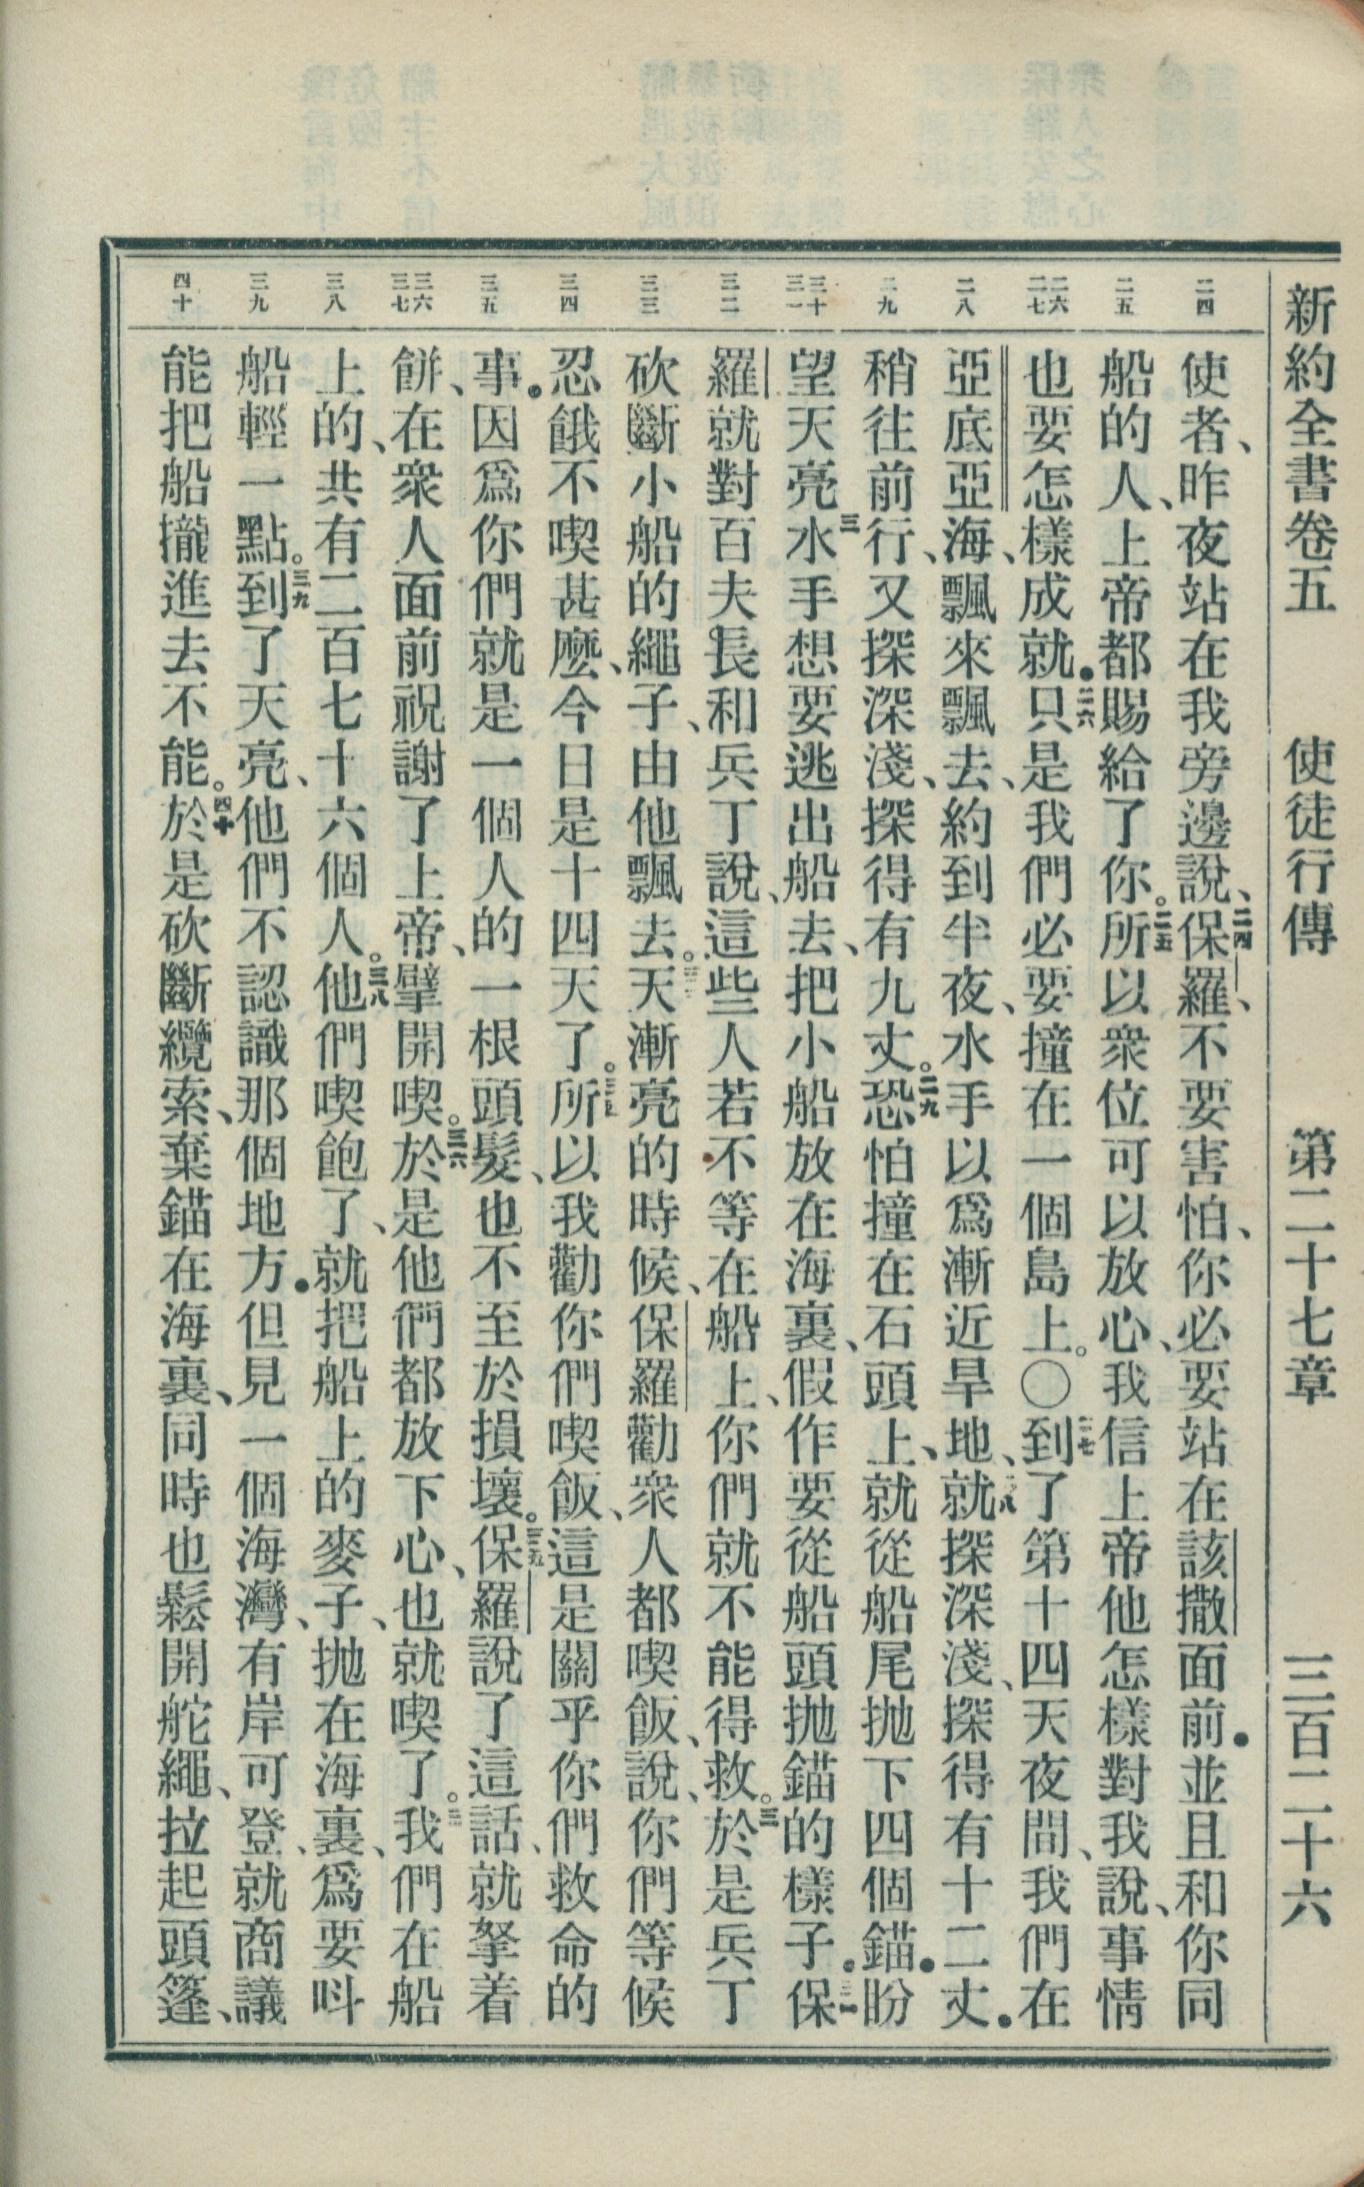 新約全書卷五 使徒行傳 第二十七章 三百二十六
二四
使者、昨夜站在我旁邊說、二四保羅、不要害怕、你必要站在該撒面前•並且和你同
二五
船的人、上帝都賜給了你。二五所以衆位可以放心、我信上帝他怎樣對我說、事情
二六 二七
也要怎樣成就•二六只是我們必要撞在一個島上。〇二七到了第十四天夜間、我們在
二八
亞底亞海、飄來飄去、約到半夜、水手以爲漸近旱地、二八就探深淺、探得有十二丈•
二九
稍往前行、又探深淺、探得有九丈。二九恐怕撞在石頭上、就從船尾拋下四個錨•盼
三十 三一
望天亮三水手想要逃出船去、把小船放在海裏、假作要從船頭拋錨的樣子。三一保
三二
羅就對百夫長和兵丁說、這些人若不等在船上、你們就不能得救。三於是兵丁
三三
砍斷小船的繩子、由他飄去。天漸亮的時候、保羅勸衆人都喫飯、說、你們等候
三四
忍餓不喫甚麼、今日是十四天了。所以我勸你們喫飯、這是關乎你們救命的
三五
事。因爲你們就是一個人的一根頭髮、也不至於損壞。三五保羅說了這話、就拏着
三六 三七
餅、在衆人面前祝謝了上帝、擘開喫。三六於是他們都放下心、也就喫了。我們在船
三八
上的、共有二百七十六個人。三八他們喫飽了、就把船上的麥子、拋在海裏、爲要呌
三九
船輕一點。三九到了天亮、他們不認識那個地方•但見一個海灣、有岸可登、就商議
四十
能把船攏進去不能。四十於是砍斷纜索、棄錨在海裏、同時也鬆開舵繩、拉起頭篷、